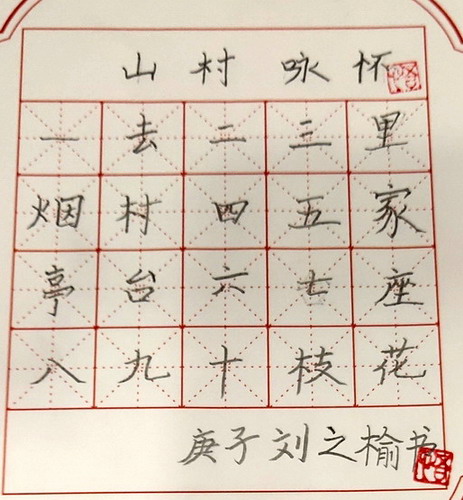 山村咏怀
一去二三里
烟村四五家
亭台六七座
八九十枝花
庚子刘之榆书